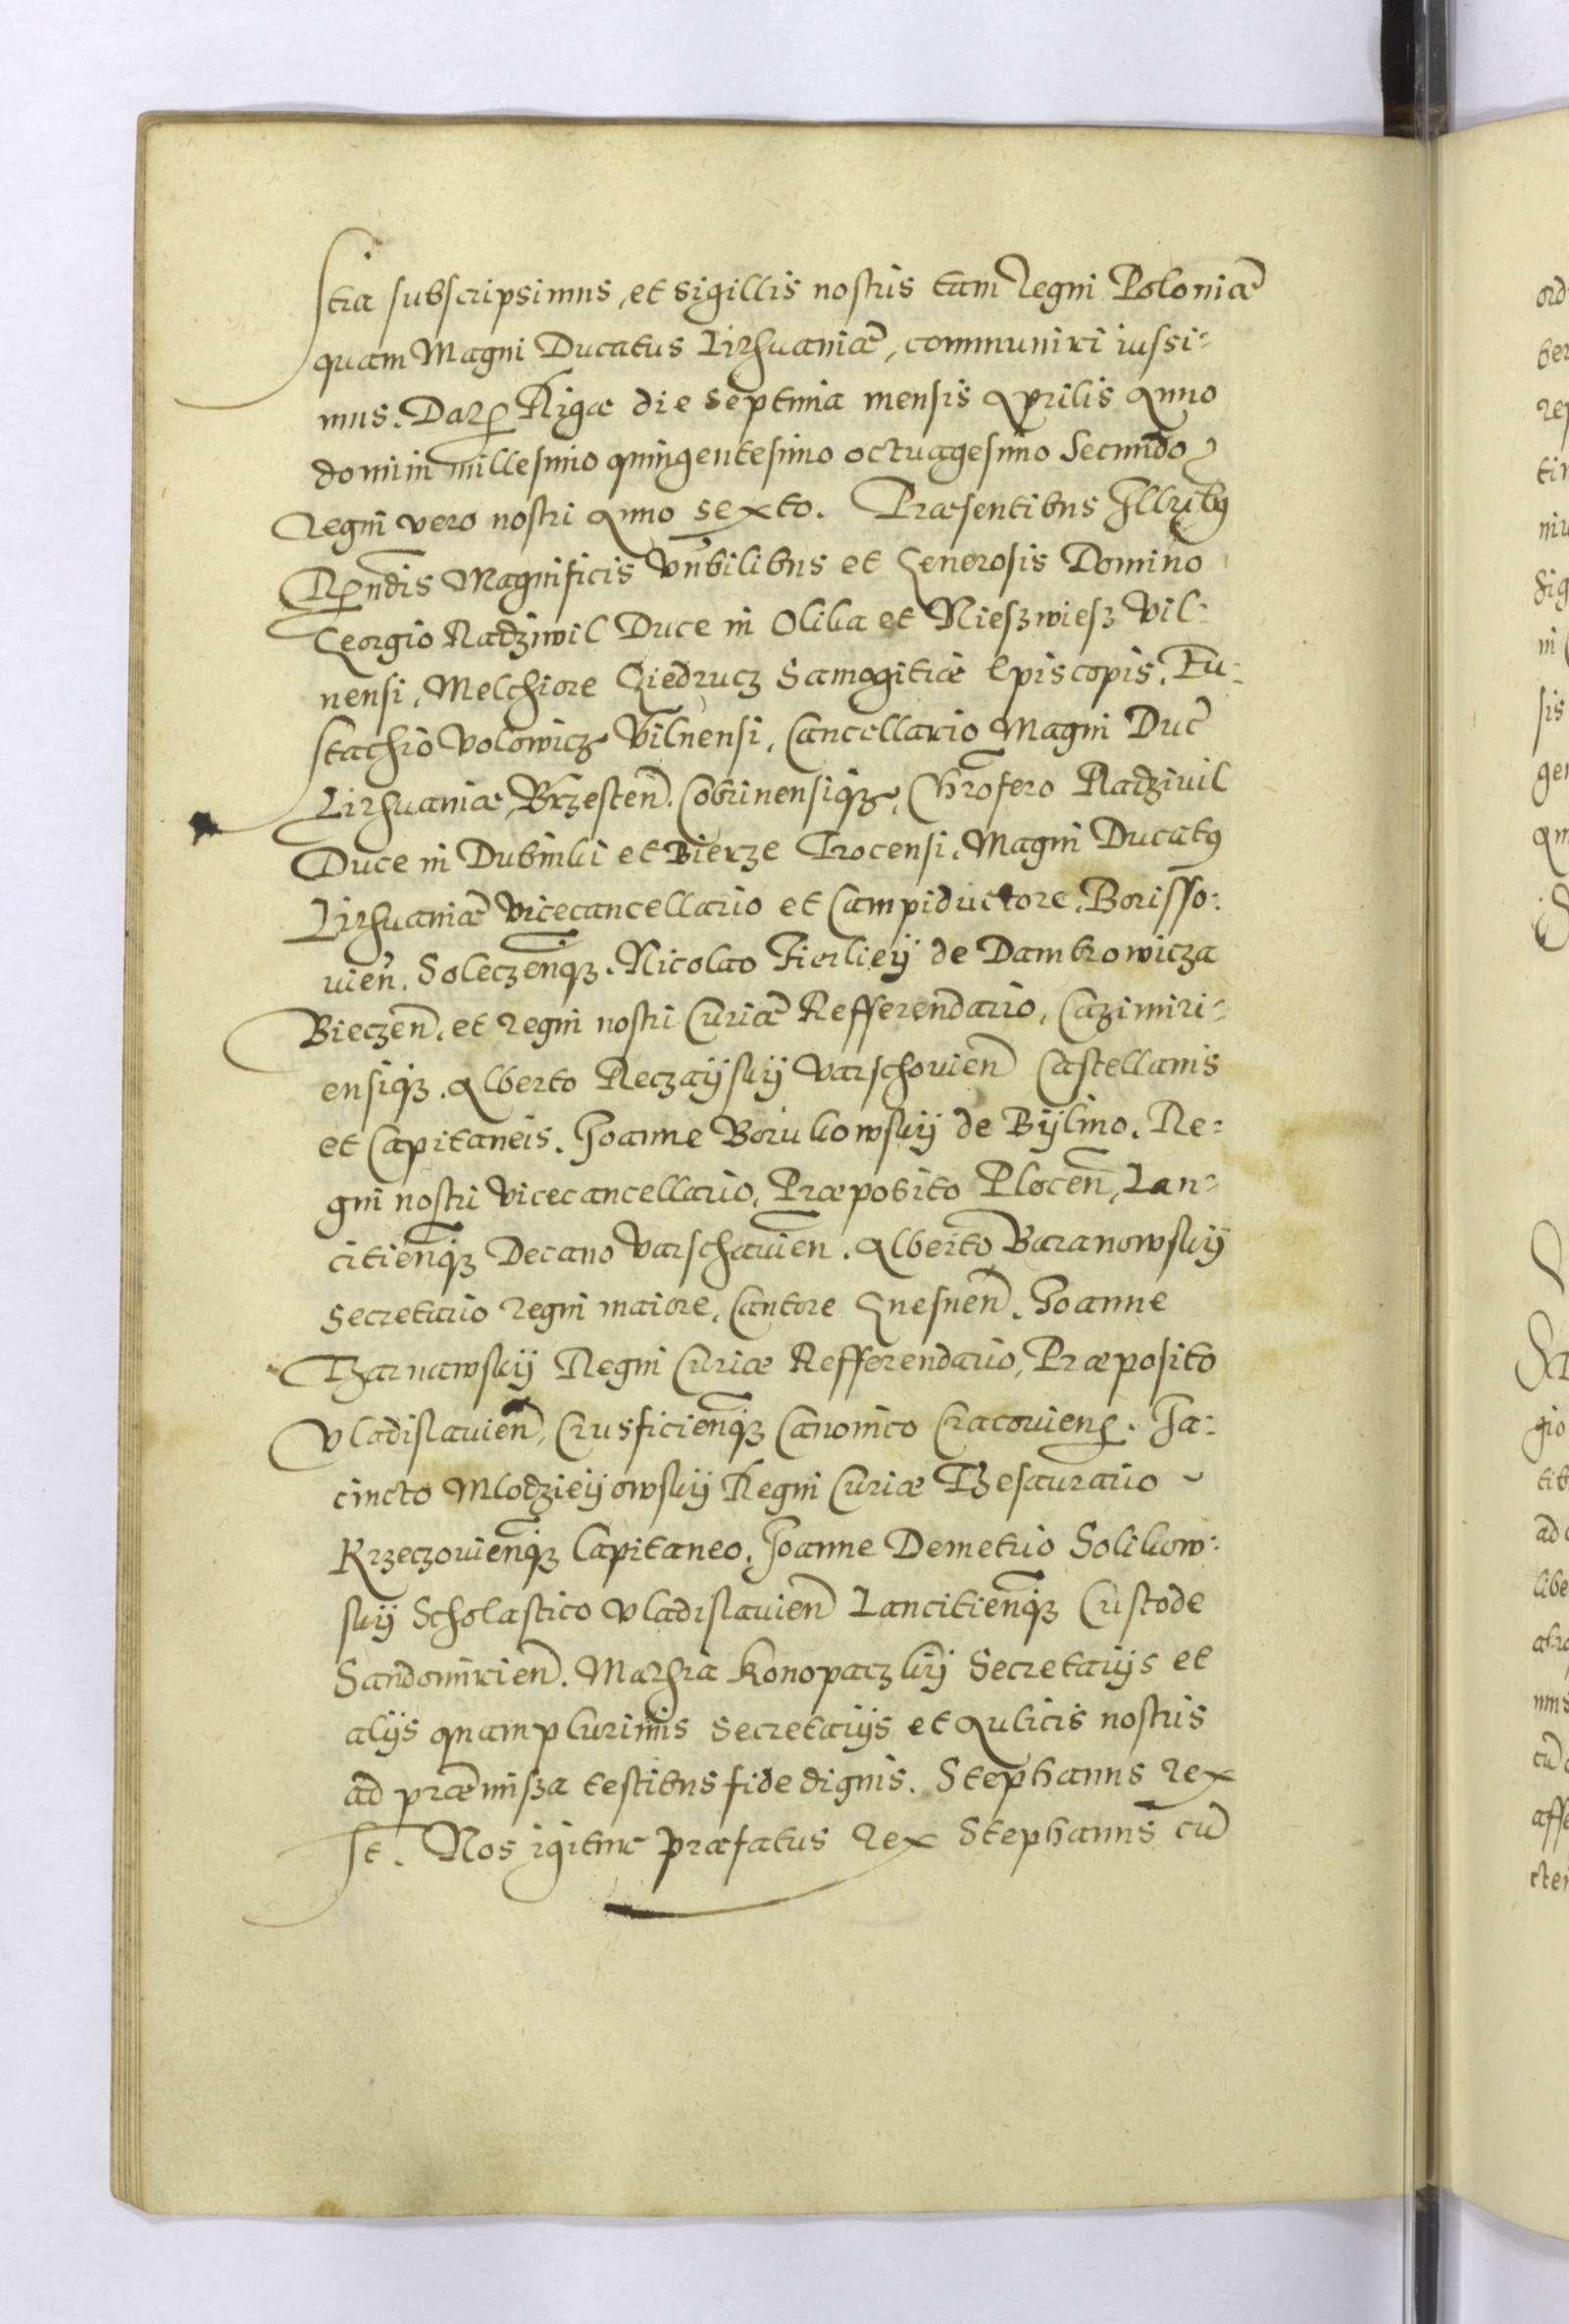 stra subscripsimus, et sigillis nostris tam Regni Poloniæ
quam Magni Ducatus Lithuaniæ, communiri iussi-
mus. Dat Rigæ die septima mensis Aprilis Anno
domini millesimo quingentesimo octuagesimo Secundo
Regni vero nostri Anno sexto. Præsentibus
Rndis Magnificis Vnbilibus et Generosis Domino
Georgio Radziwil Duce in Olika et Nieszwiesz Vil-
nensi, Melchiore Giedrucz Samogitiæ Episcopis. Eu-
stachio Volowicz Vilnensi, Cancellario Magni Duc
Lithuaniæ, Brzesten. Cobrinensiq3, Chrofero Radzivil
Duce in Dubinki et Bierze Trocensi. Magni Ducatus
Lithuaniæ Vicecancellario et Campiductore. Borisso-
uien. Soleczenq3. Nicolao Firliey de Dambrowicza
Bieczen. et Regni nostri Curiæ Refferendario, Cazimiri-
ensiq3. Alberto Reczayskÿ Varschouien Castellanis
et Capitaneis. Joanne Borukowskÿ de Bÿlino. Re-
gni nostri Vicecancellario, Præposito Plocen, Lan-
citienq3 Decano Varschauien. Alberto Baranowskÿ
Secretario Regni maiore, Cantore Gnesnen. Joanne
Tharnawskÿ Regni Curiæ Refferendario, Præposito
Vladislauien, Crusficienq3 Canonico Cracouien. Ja-
cincto Mlodzieÿowskÿ Regni Curiæ Thesaurario
Krzeczouienq3 Capitaneo. Joanne Demetrio Solikow-
skÿ Scholastico Vladislauien Lancitienq3 Custode
Sandomirien. Mathia Konopaczkÿ Secretarÿs et
alÿs quamplurimis Secretarÿs et Aulicis nostris
ad præmissa testibus fide dignis. Stephanus Rex
st. Nos igitur præfatus Rex Stephanus cū